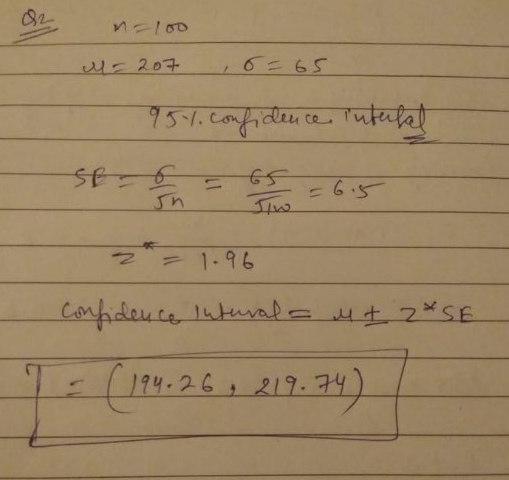 Q2
n=100
μ=207 , σ=65
95%. confidence interval
SE = σ/√n = 65/√100 = 6.5
z* = 1.96
Confidence Interval = μ ± z*SE
= (194.26, 219.74)